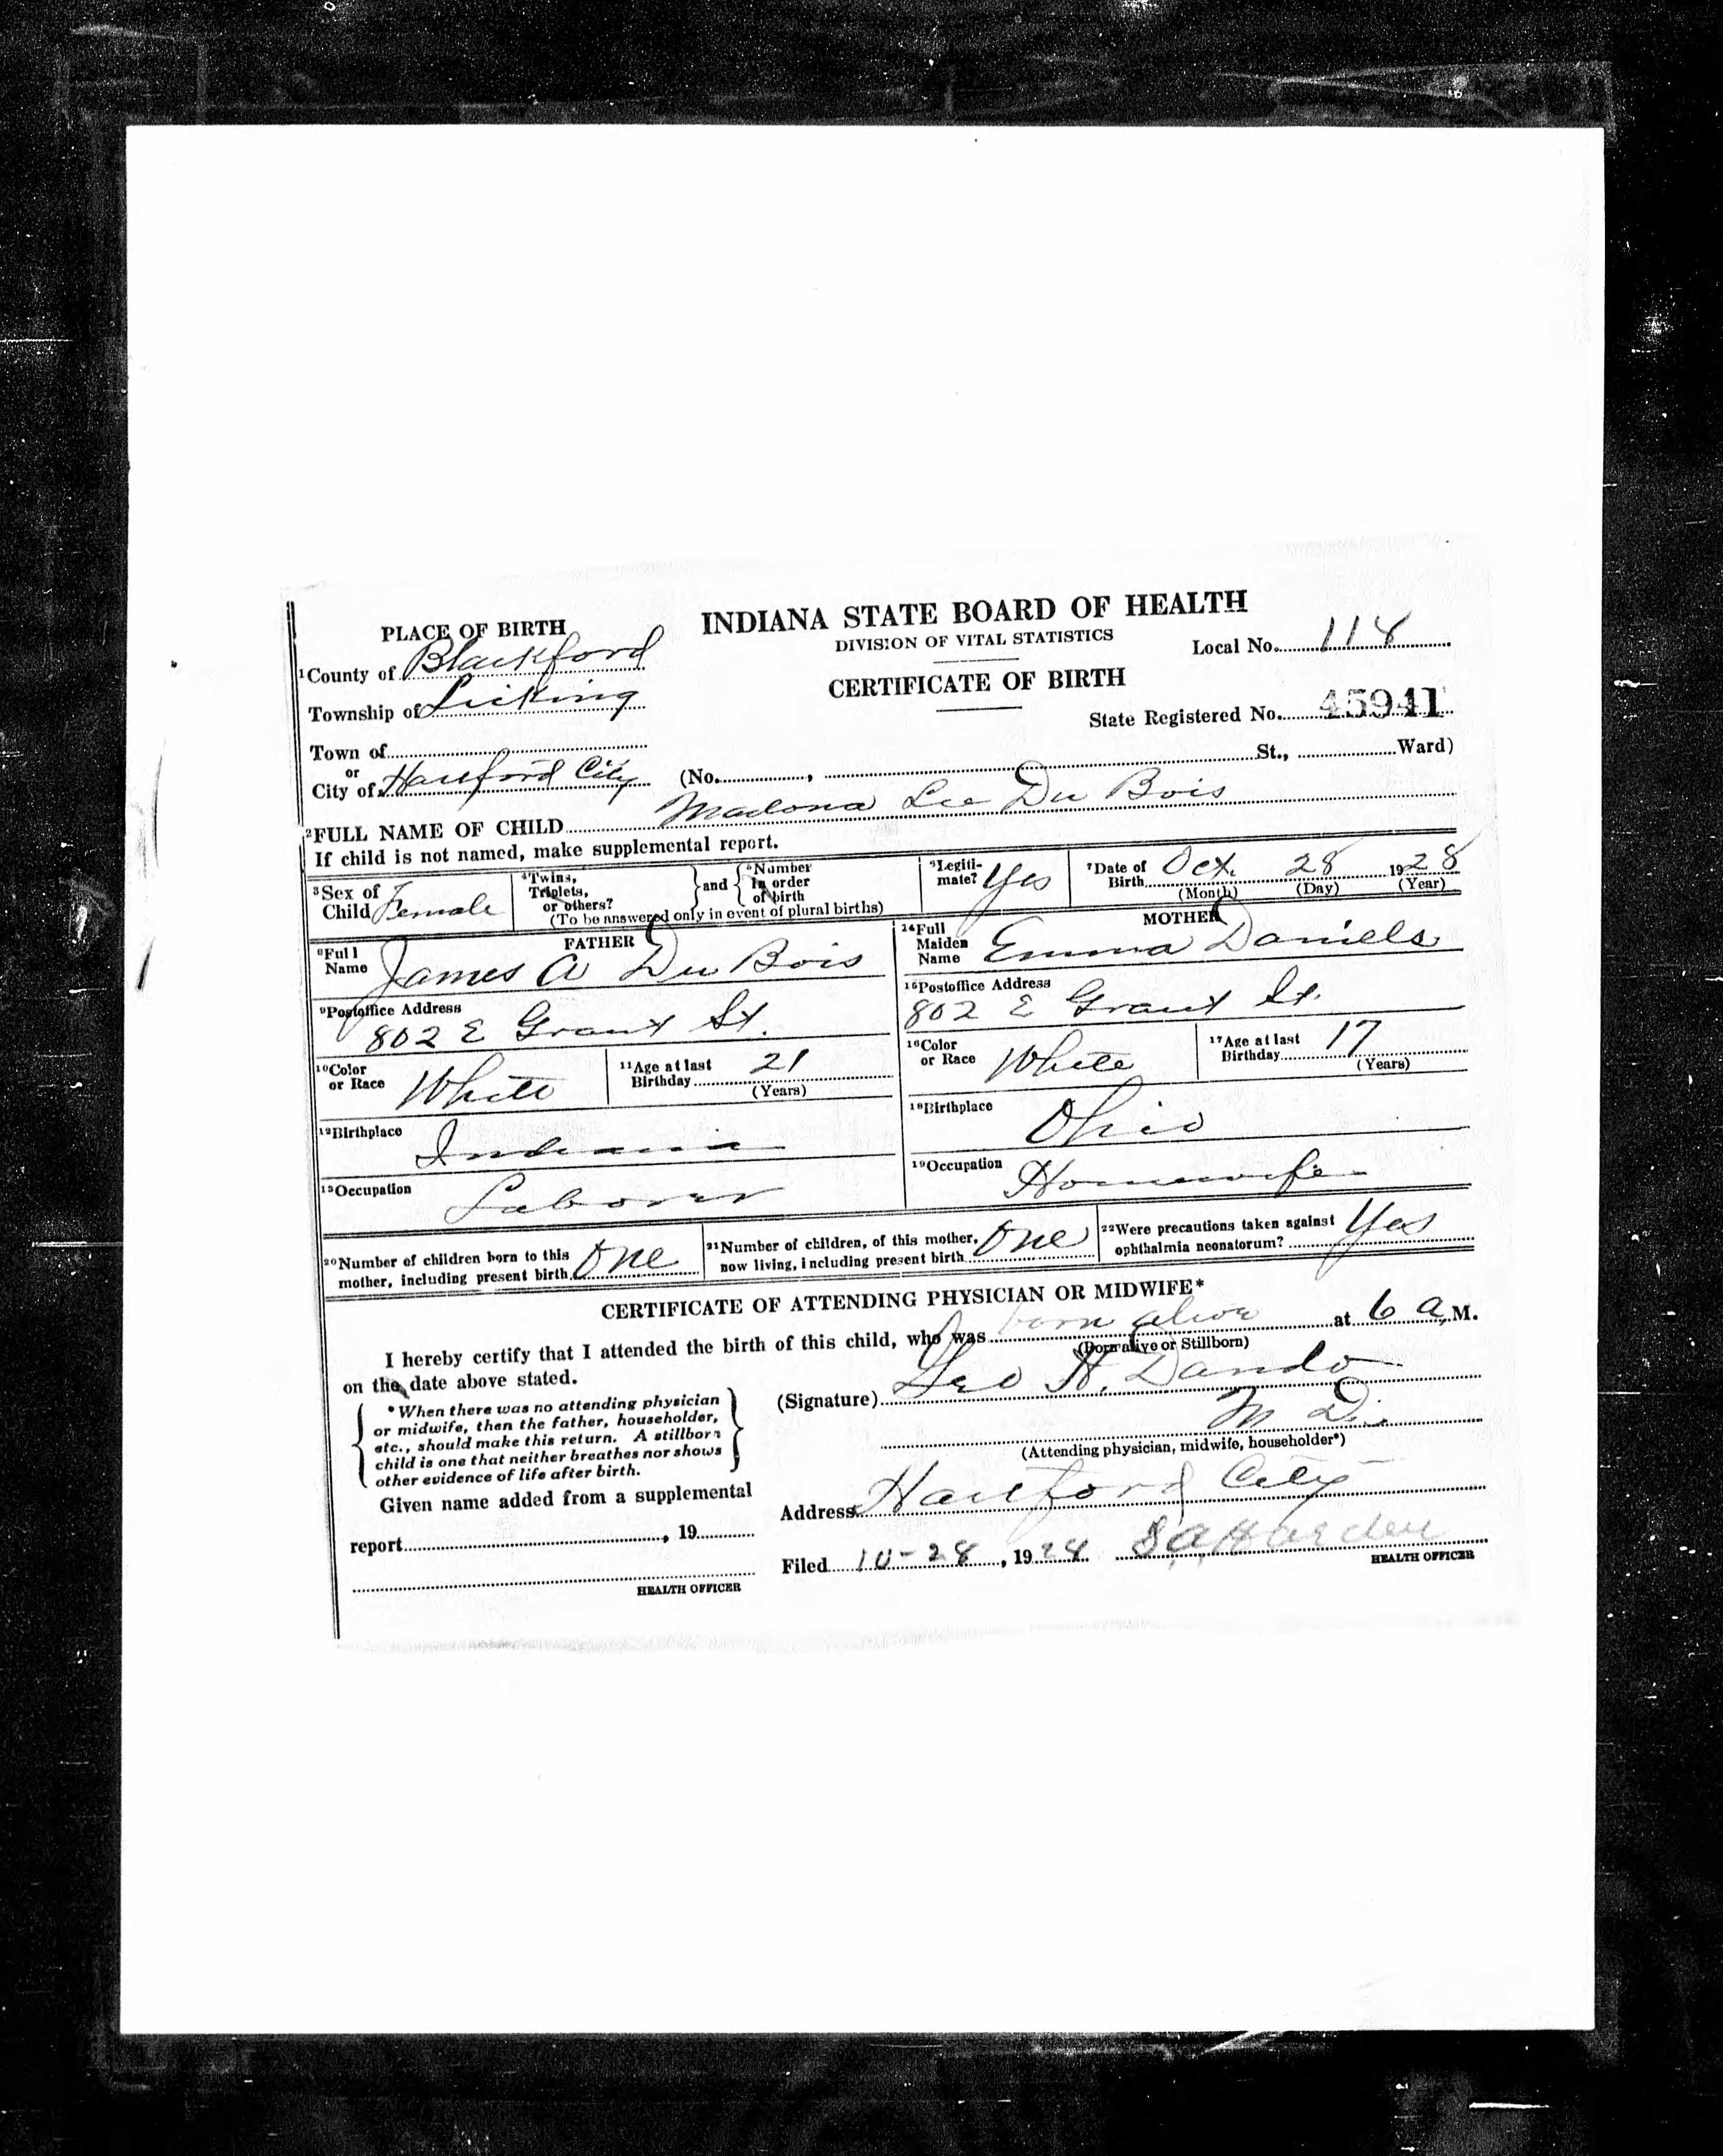 INDIANA STATE BOARD OF HEALTH
DIVISION OF VITAL STATISTICS
CERTIFICATE OF BIRTH
PLACE OF BIRTH
Local No. 114
1 County of Blackford
Township of Licking
State Registered No. 45941
Town of
or
City of Hartford City (No. , St., Ward)
2 FULL NAME OF CHILD Madona Lee Du Bois
If child is not named, make supplemental report.
3 Sex of Child Female
4 Twins, Triplets, or others? and 5 Number in order of birth
(To be answered only in event of plural births)
Legitimate? Yes
7 Date of Birth Oct. 28 1928
(Month) (Day) (Year)
FATHER
8 Full Name James A Du Bois
9 Postoffice Address
802 E Grant St.
10 Color or Race White
11 Age at last Birthday 21
(Years)
12 Birthplace Indiana
13 Occupation Laborer
MOTHER
14 Full Maiden Name Emma Daniels
15 Postoffice Address
802 E Grant St.
16 Color or Race White
17 Age at last Birthday 17
(Years)
18 Birthplace Ohio
19 Occupation Homewife
20 Number of children born to this mother, including present birth One
21 Number of children, of this mother, now living, including present birth One
22 Were precautions taken against ophthalmia neonatorum? Yes
CERTIFICATE OF ATTENDING PHYSICIAN OR MIDWIFE*
I hereby certify that I attended the birth of this child, who was born alive at 6 a. M.
(Born alive or Stillborn)
on the date above stated.
*When there was no attending physician
or midwife, then the father, householder,
etc., should make this return. A stillborn
child is one that neither breathes nor shows
other evidence of life after birth.
(Signature) Geo H. Dando
M D.
(Attending physician, midwife, householder*)
Given name added from a supplemental
report , 19
HEALTH OFFICER
Address Hartford City
Filed 10-28, 1928 S A Harden
HEALTH OFFICER